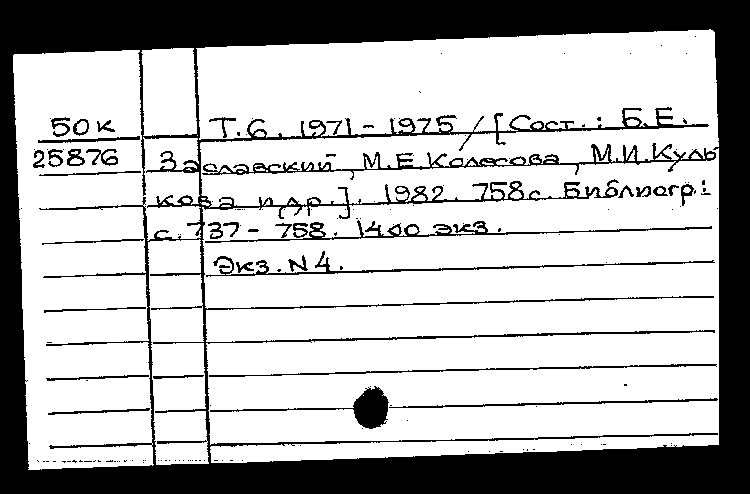 50к Т.6. 1971-1975 / [Сост.: Б.Е.
25876 Заславский, М.Е.Колесова, М.И.Куль
кова и др.]. 1982. 758с. Библиогр.:
с.737-758. 1400 экз.
Экз. N4.